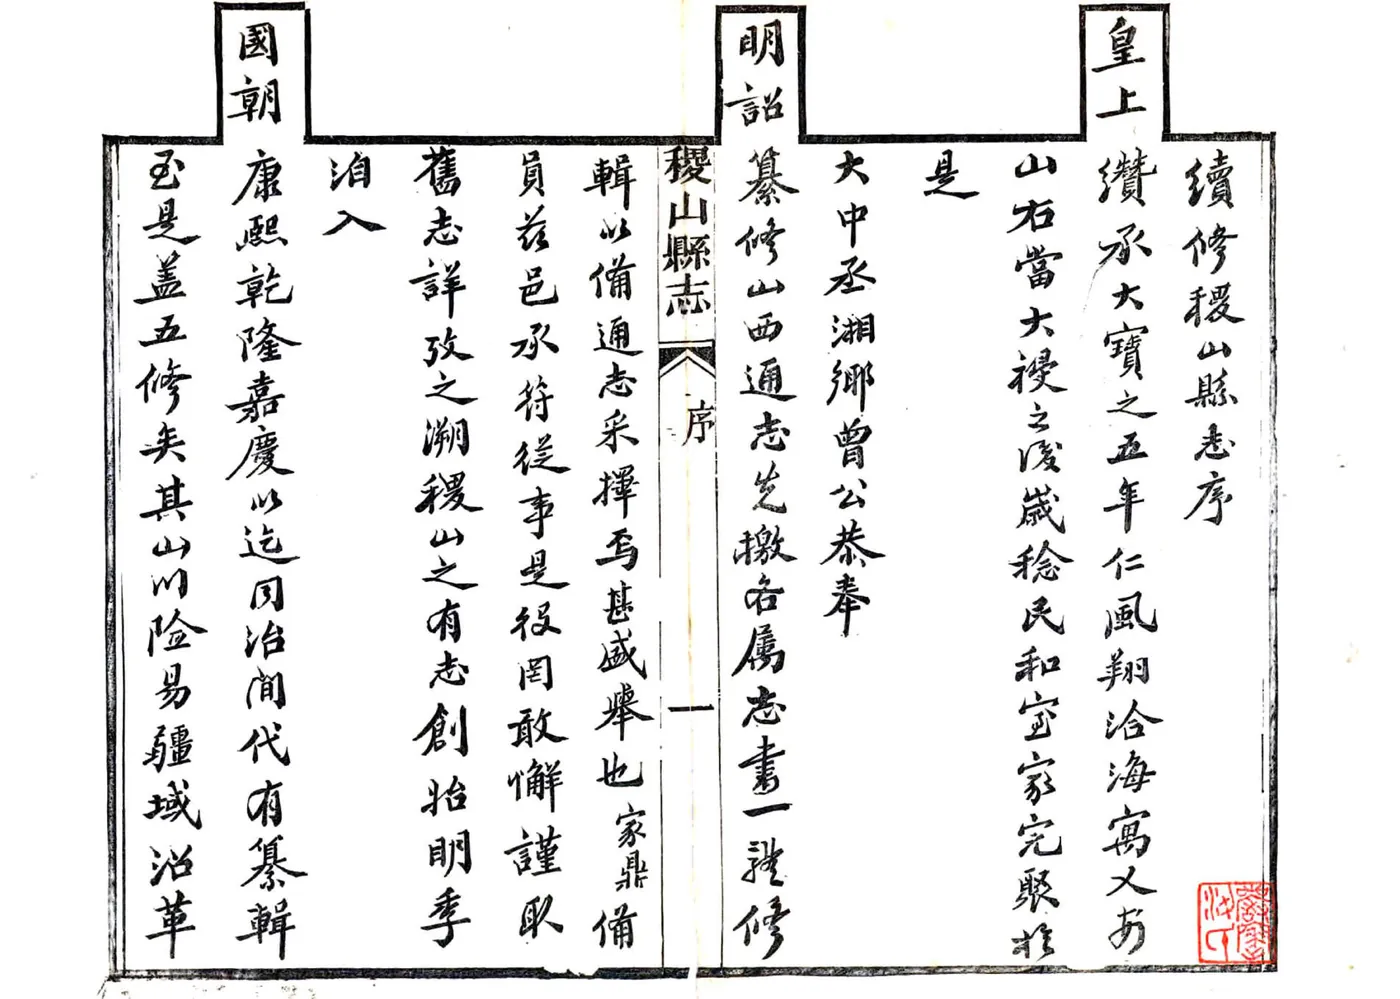 續修稷山縣志序
皇上纘承大寶之五年仁風翔洽海寓乂安
山右當大祲之後歲稔民和室家完聚於
是
大中丞湘鄉曾公恭奉
明詔纂修山西通志先檄各属志書一體修
稷山縣志 序 一
輯以備通志采擇焉甚盛舉也家鼎備
員茲邑承符從事是役罔敢懈謹取
舊志詳攷之溯稷山之有志創始明季
洎入
國朝康熙乾隆嘉慶以迄同治間代有纂輯
至是蓋五修矣其山川險易疆域沿革